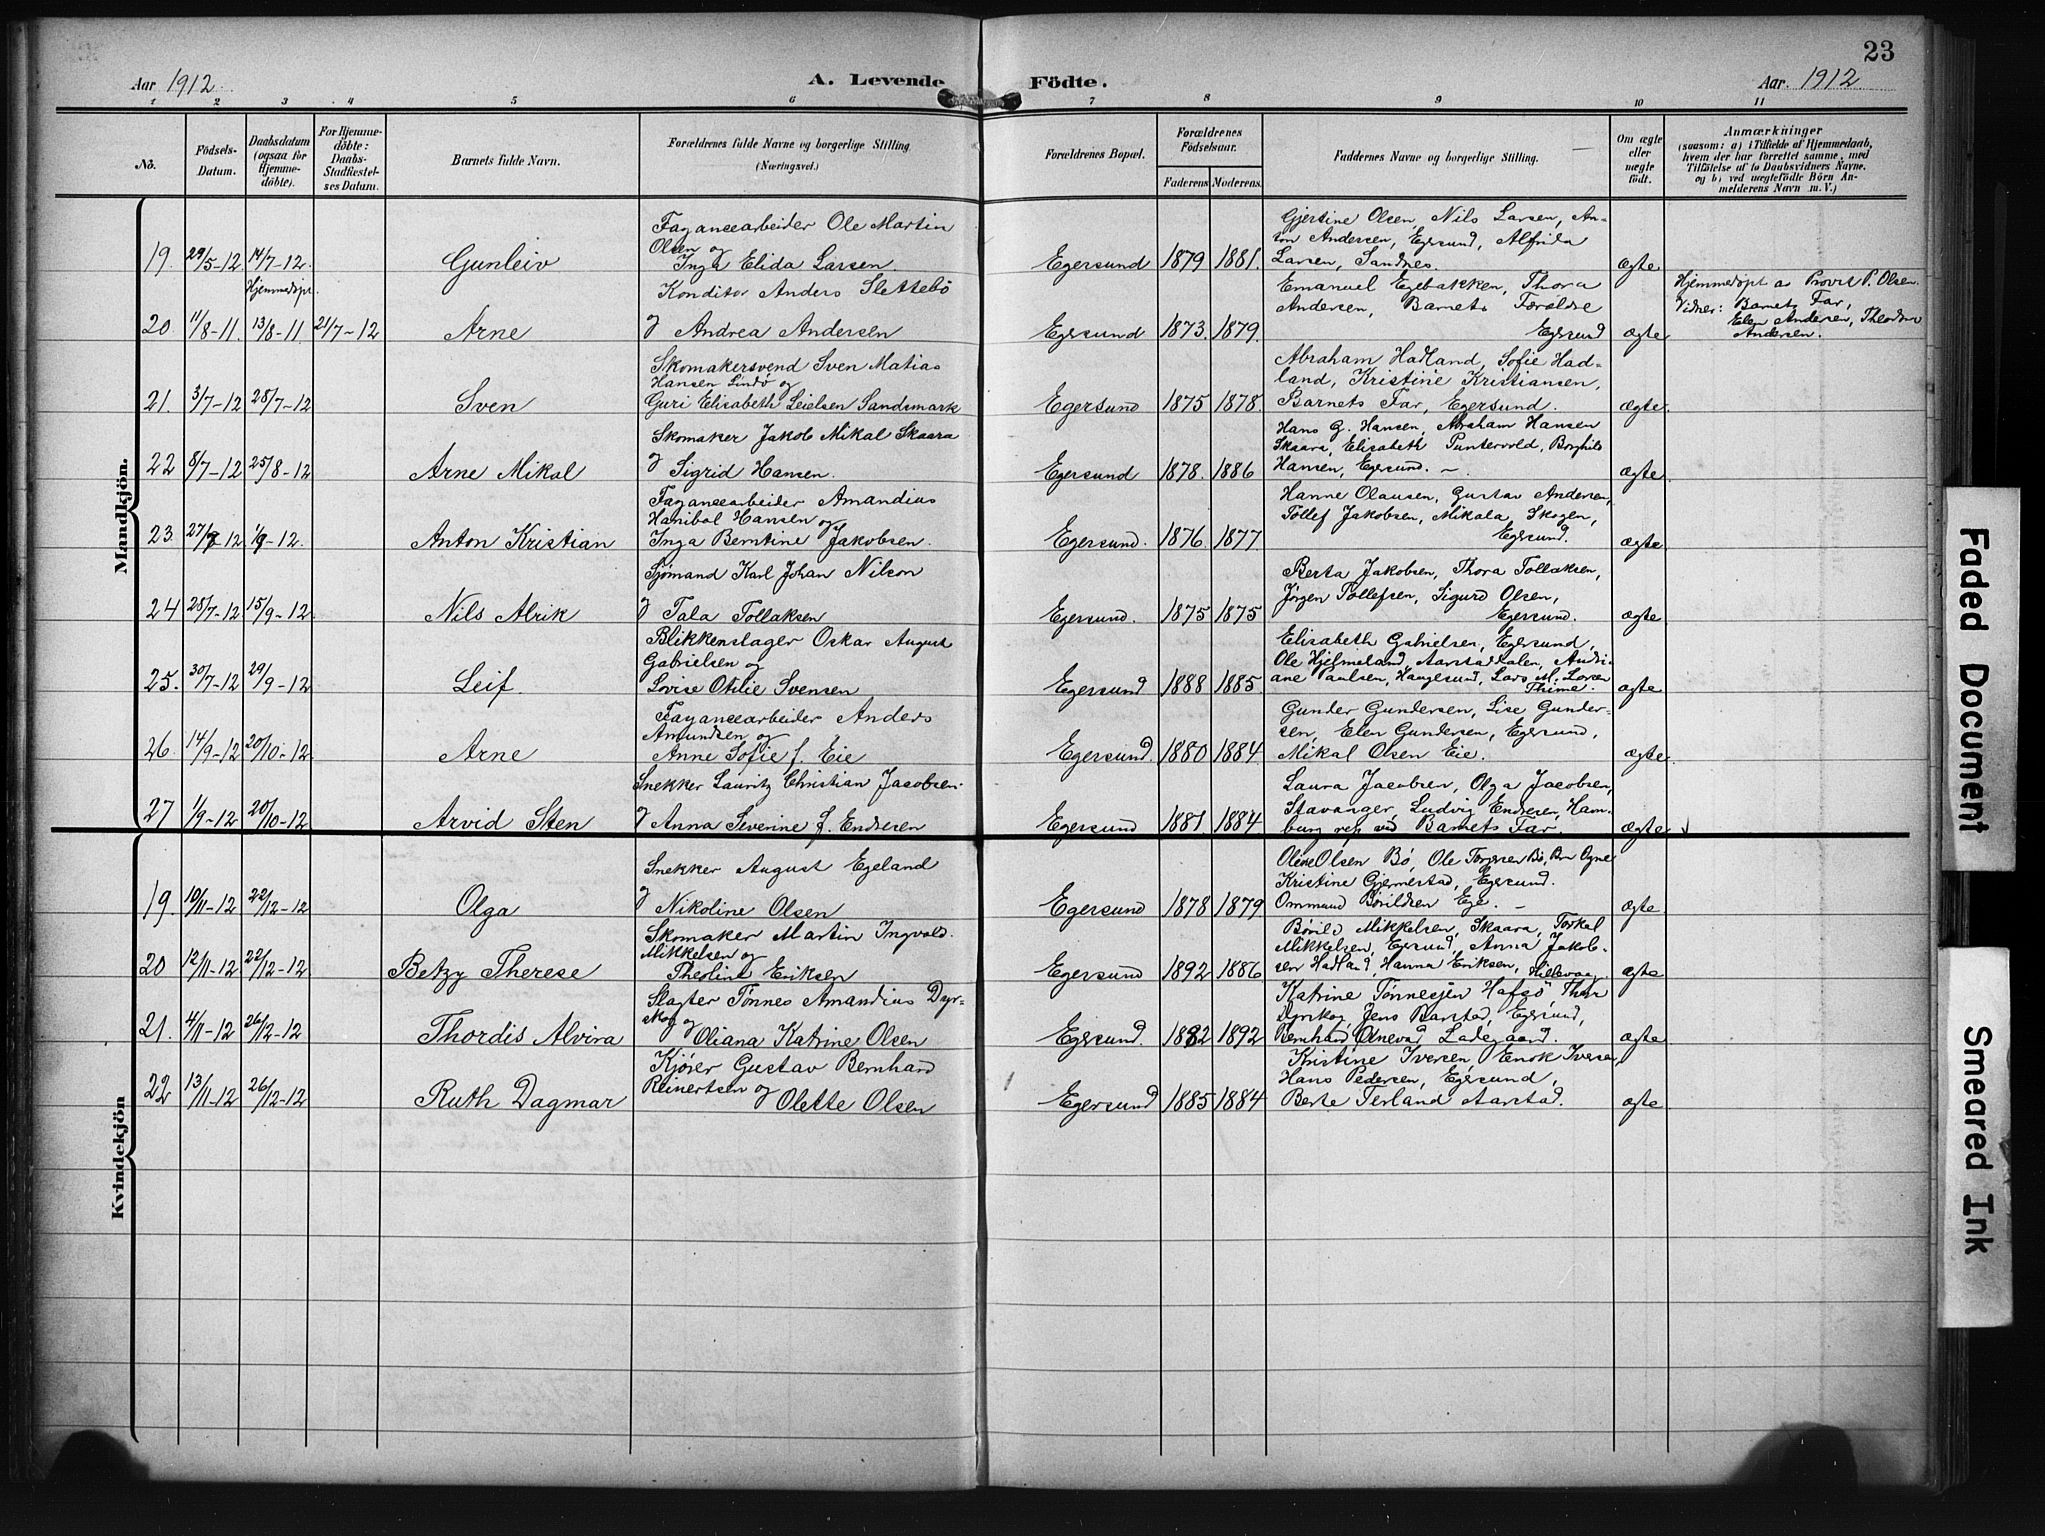 23
Aar 1912
A. Levende Födte.
Aar. 1912
1 2 3 4 5 6 7 8 9 10 11
No.
Födsels-
Datum.
Daabsdatum
(ogsaa for
Hjemme-
döbte).
For Hjemme-
döbte:
Daabs-
Stadfæstel-
ses Datum.
Barnets fulde Navn.
Forældrenes fulde Navne og borgerlige Stilling
(Næringsvei.)
Forældrenes Bopæl.
Forældrenes
Födselsaar.
Faderens Moderens.
Faddernes Navne og borgerlige Stilling.
Om ægte
eller
uægte
födt.
Anmærkninger
(saasom: a) i Tilfælde af Hjemmedaab,
hvem der har forrettet samme, med
Tilföielse af to Daabsvidners Navne.
og b) ved uægtefödte Börn An-
melderens Navn m. V.)
Mandkjön.
19. 29/5-12 14/7-12. Gunleiv
Fayancearbeider Ole Martin
Olsen og
Inga Elida Larsen.
Egersund 1879 1881.
Gjertine Olsen, Nils Larsen, An-
ton Andersen, Egersund, Alfrida
Larsen, Sandnes.
ægte
20. 11/8-11. Hjemmedøpt. 13/8-11 21/7-12 Arne
Konditor Anders Slettebö
og Andrea Andersen
Egersund 1873. 1879.
Emanuel Egebakken, Thora
Andersen, Barnets Forældre
Egersund
ægte
Hjemmedøpt av Provst P. Olsen.
Vidner: Barnets Far,
Elen Andersen, Theodor
Andersen.
21. 3/7-12 28/7-12 Sven
Skomakersvend Sven Matias
Hansen Lindö og
Guri Elisabeth Leielsen Sandsmark
Egersund 1875 1878.
Abraham Hadland, Sofie Had-
land, Kristine Kristiansen,
Barnets Far, Egersund.
ægte.
22 8/7-12 25/8-12 Arne Mikal
Skomaker Jakob Mikal Skaara
og Sigrid Hansen.
Egersund 1878. 1886
Hans G. Hansen, Abraham Hansen
Skaara, Elisabeth Puntervold, Borghild
Hansen, Egersund. -
ægte
23. 27/7-12 1/9-12. Anton Kristian
Fayancearbeider Amandius
Hanibal Hansen og
Inga Berntine Jakobsen.
Egersund. 1876. 1877
Hanne Olausen, Gustav Andersen,
Tollef Jakobsen, Mikala Skogen,
Egersund.
ægte
24 28/7-12 15/9-12 Nils Alrik
Sjömand Karl Johan Nilson
og Tala Tollaksen
Egersund. 1875 1875
Berta Jakobsen, Thora Tollaksen,
Jörgen Tollefsen, Sigurd Olsen,
Egersund.
ægte
25. 30/7-12 29/9-12 Leif.
Blikkenslager Oskar August
Gabrielsen og
Lovise Otilie Svensen
Egersund 1888 1885
Elisabeth Gabrielsen, Egersund,
Ole Hjelmeland, Aarstaddalen, Andri-
ane Paulsen, Haugesund, Lars M. Larsen
Thime.
ægte
26. 14/9-12 20/10-12 Arne
Fayancearbeider Anders
Amundsen og
Anne Sofie f. Eie
Egersund. 1880 1884
Gunder Gundersen, Lise Gunder-
sen, Elen Gundersen, Egersund,
Mikal Olsen Eie.
ægte
27 1/9-12 20/10-12 Arvid Sten
Snekker Lauritz Christian Jacobsen
og Anna Severine f. Endresen
Egersund 1881 1884
Laura Jacobsen, Olga Jacobsen,
Stavanger, Ludvig Endresen, Ham-
burg rep. ved Barnets Far.
ægte
Kvindekjön
19. 10/11-12 22/12-12 Olga
Snekker August Egeland
og Nikoline Olsen
Egersund 1878 1879
Oline Olsen Bö, Ole Torgersen Bö, Ogne
Kristine Gjermestad, Egersund.
Ommund Börildsen Ege. -
ægte
20 12/11-12 22/12-12 Betzy Therese
Skomaker Martin Ingvald.
Mikkelsen og
Theoline Eriksen
Egersund 1892 1886
Börild Mikkelsen, Skaara, Torkel
Mikkelsen, Egersund, Anna Jakob-
sen Hadland, Hanna Eriksen, Hillevaag.
ægte
21. 4/11-12 26/12-12 Thordis Alvira
Slagter Tönnes Amandius Dyr-
skog og
Oliana Katrine Olsen
Egersund. 1882 1892
Katrine Tönnesen Hafsö, Thor
Dyrskog, Jens Barstad, Egersund,
Bernhard Ölnevad Ladegaard.
ægte
22 13/11-12 26/12-12 Ruth Dagmar
Kjörer Gustav Bernhard
Reinertsen og
Olette Olsen
Egersund 1885 1884
Kristine Iversen, Enok Iversen,
Hans Pedersen, Egersund,
Berte Terland Aarstad.
ægte
Faded Document
Smeared Ink